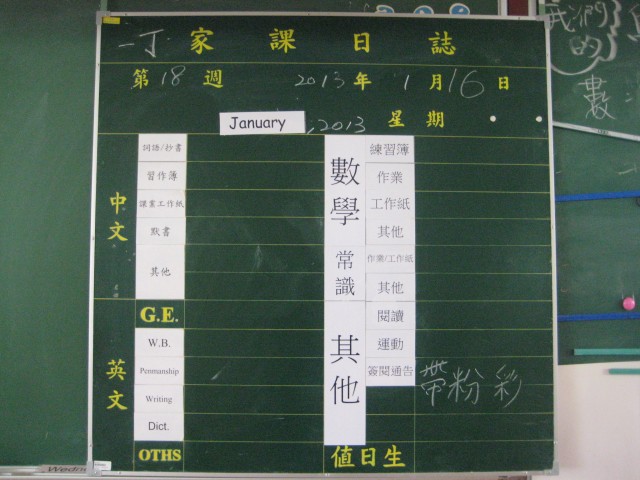 一丁 家課日誌
第18週 2013年1月16日
January , 2013 星期
中文
詞語/抄書
習作簿
課業工作紙
默書
其他
英文
G.E.
W.B.
Penmanship
Writing
Dict.
OTHS
數學
練習簿
作業
工作紙
其他
常識
作業/工作紙
其他
其他
閱讀
運動
簽閱通告 帶粉彩
值日生
我們
的
數